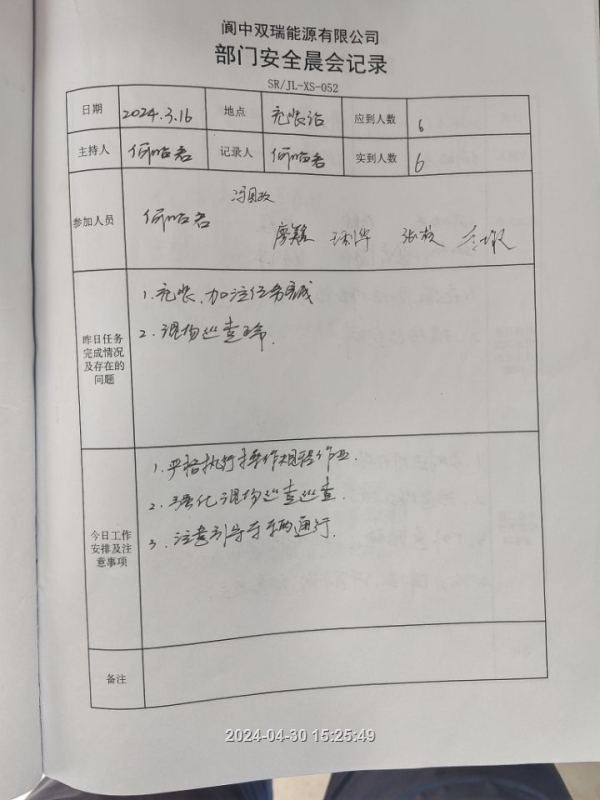 阆中双瑞能源有限公司
部门安全晨会记录
SR/JL-XS-052
日期 2024.3.16 地点 充装站 应到人数 6
主持人 记录人 实到人数 6
参加人员
昨日任务完成情况及存在的问题
1.充装、加注任务完成
2.现场巡查正常.
今日工作安排及注意事项
1.严格执行操作规程作业.
2.强化现场巡查巡查.
3.注意引导车辆通行.
备注
2024-04-30 15:25:49